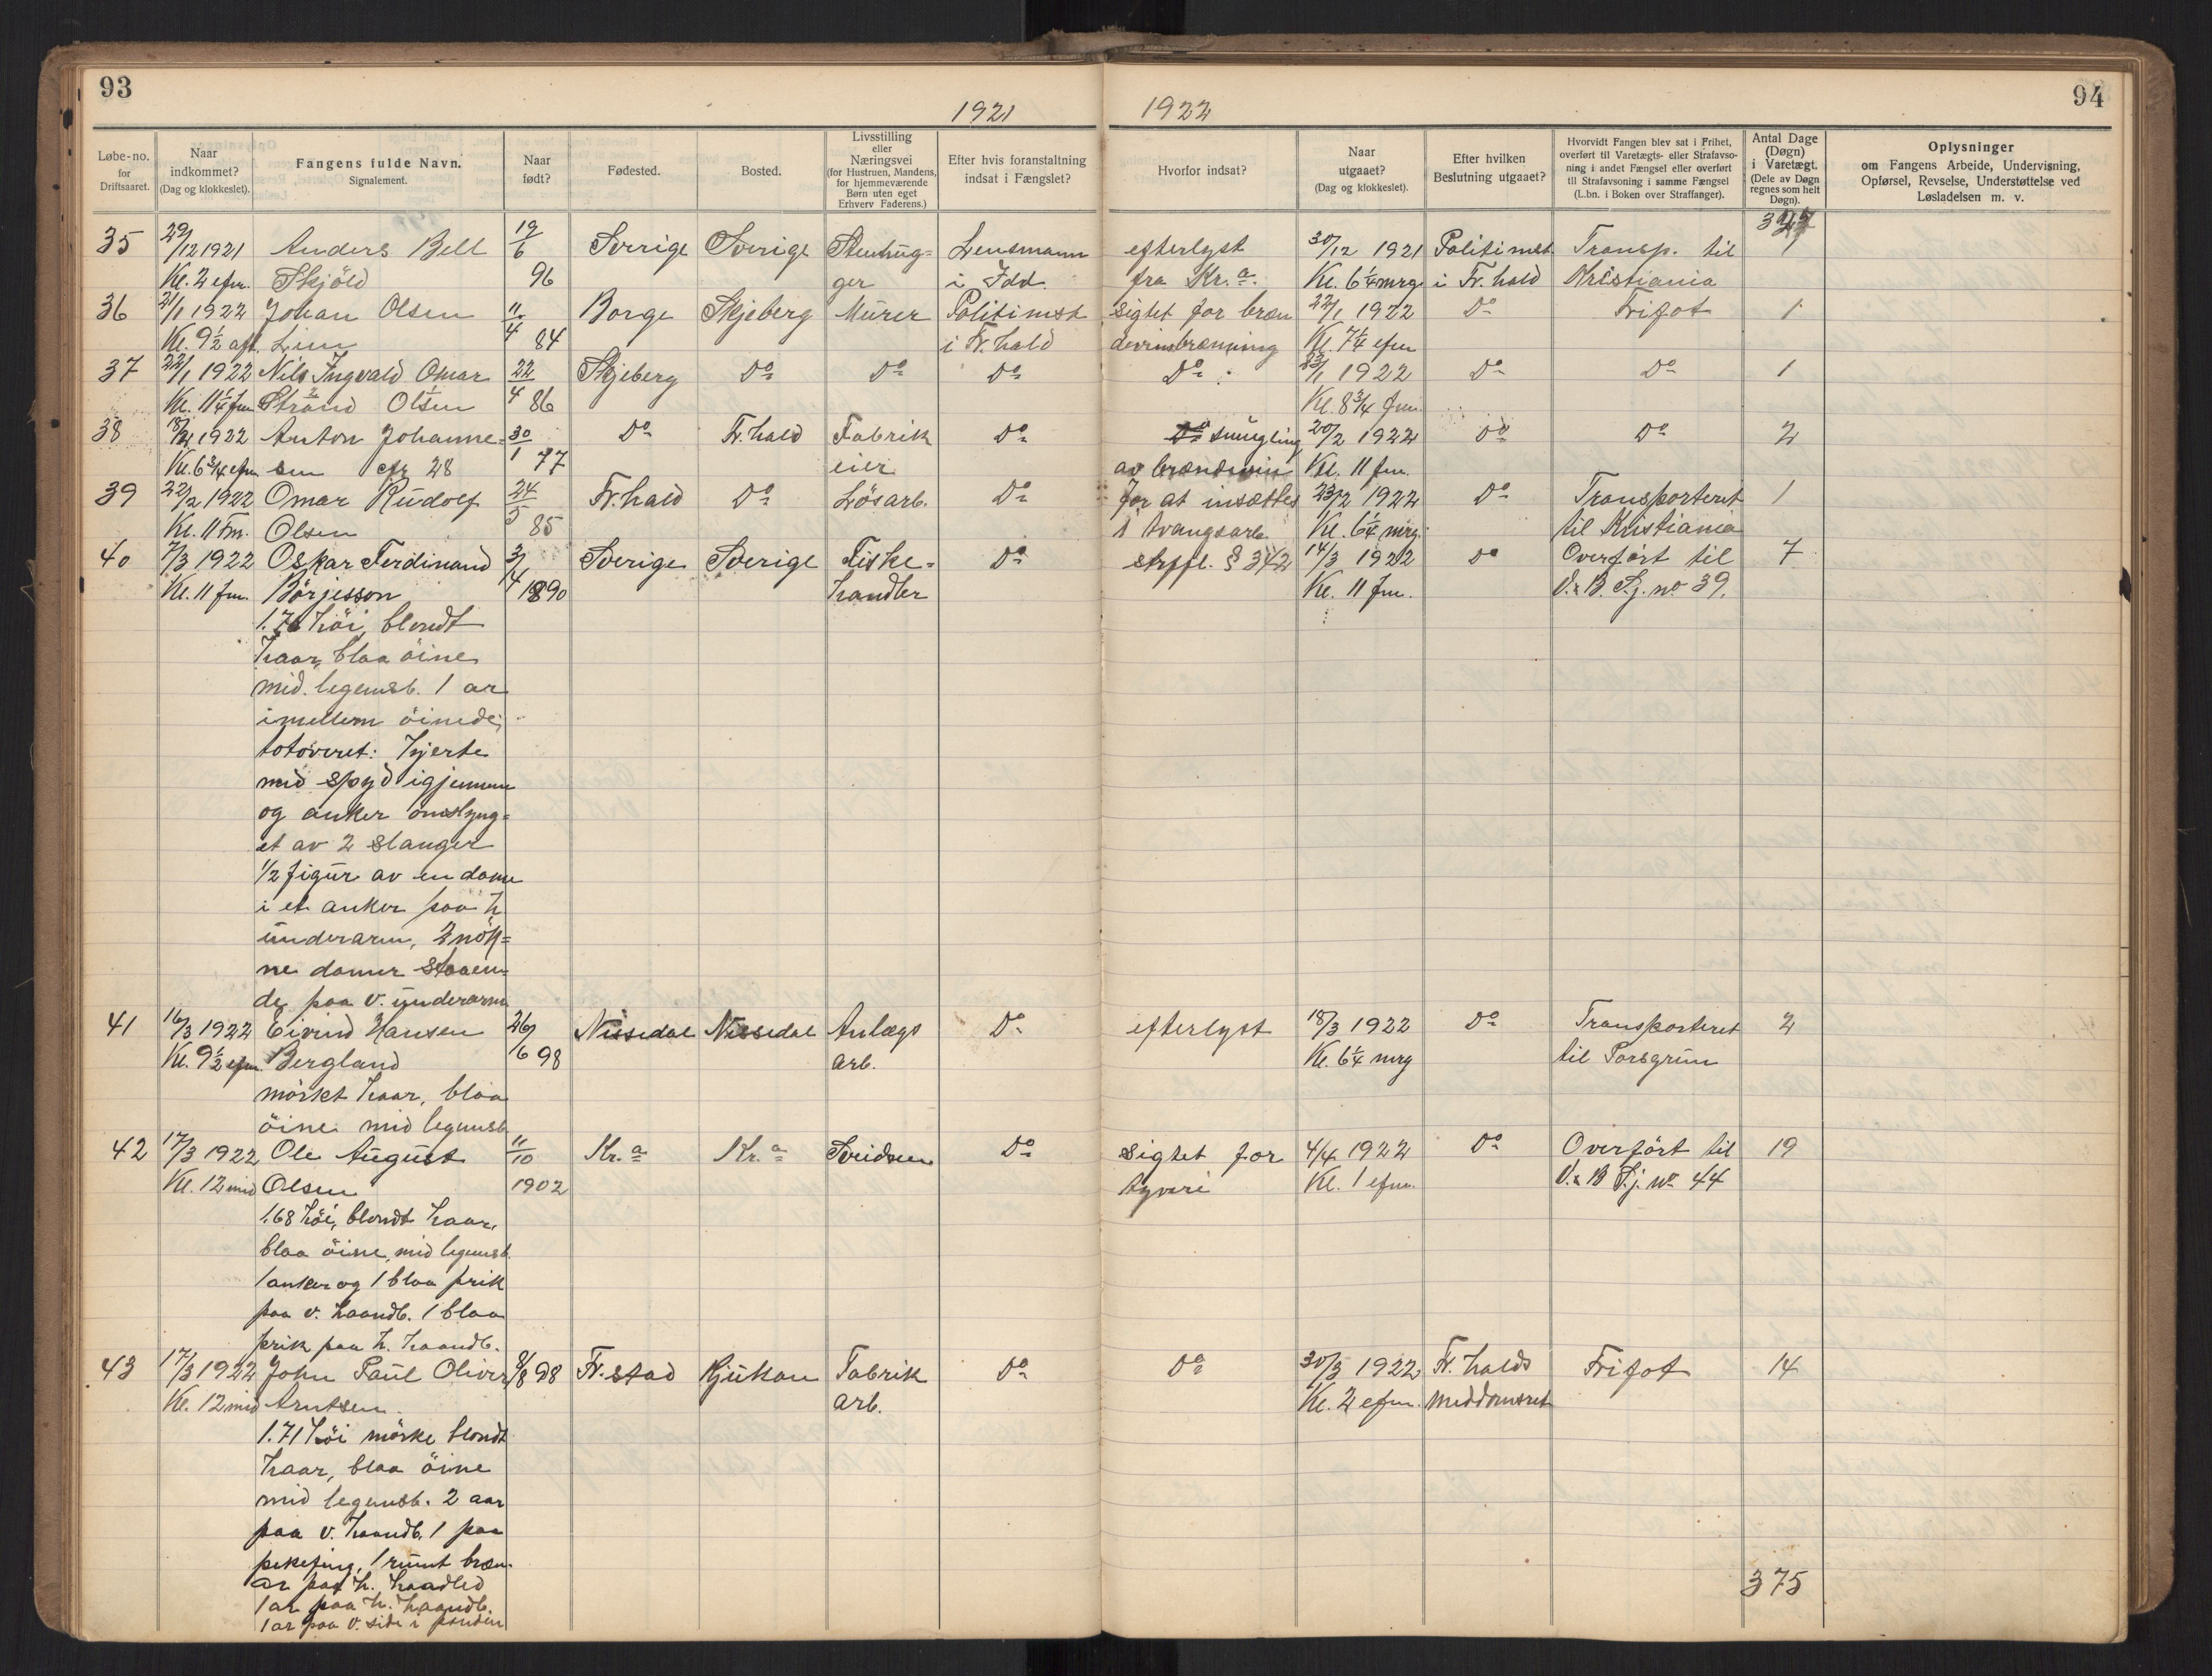 93
94
1921
1922
Løbe-no.
for
Driftsaaret.
Naar
indkommet?
(Dag og klokkeslet).
Fangens fulde Navn.
Signalement.
Naar
født?
Fødested.
Bosted.
Livsstilling
eller
Næringsvei
(for Hustruen, Mandens,
for hjemmeværende
Børn uten eget
Erhverv Faderens.)
Efter hvis foranstaltning
indsat i Fængslet?
Hvorfor indsat?
Naar
utgaaet?
(Dag og klokkeslet).
Efter hvilken
Beslutning utgaaet?
Hvorvidt Fangen blev sat i Frihet,
overført til Varetægts- eller Strafavso-
ning i andet Fængsel eller overført
til Strafavsoning i samme Fængsel
(L.bn. i Boken over Straffanger).
Antal Dage
(Døgn)
i Varetægt.
(Dele av Døgn
regnes som helt
Døgn).
Oplysninger
om Fangens Arbeide, Undervisning,
Opførsel, Revselse, Understøttelse ved
Løsladelsen m. v.
35 29/12 1921 Anders Bell 19/6 Sverige Sverige Stenhug= Lensmann efterlyst 30/12 1921 Politimst. Transp. til 1
Kl. 2 efm. Skjöld 96 ger i Idd. fra Kr.a. Kl. 6 1/4 mrg. i Fr. hald Kristiania
36 21/1 1922 Johan Olsen 11/4 Borge Skjeberg Murer Politimst sigtet for bræn 22/1 1922 Do Frifot 1
Kl. 9 1/2 aft. Lien 84 i Fr. hald devinsbrænning Kl. 7 1/4 efm
37 22/1 1922 Nils Ingvald Omar 22/4 Skjeberg Do Do Do Do 23/1 1922 Do Do 1
Kl. 11 1/4 fm Strand Olsen 86 Kl. 8 3/4 fm.
38 18/2 1922 Anton Johanne= 30/1 Do Fr. hald Fabrik Do Do smugling 20/2 1922 Do Do 2
Kl. 6 3/4 efm sen cfr 28 77 eier av brændevin Kl. 11 fm.
39 22/2 1922 Omar Rudolf 24/5 Fr. hald Do Lösarb. Do For at insættes 23/2 1922 Do Transporteret 1
Kl. 11 fm. Olsen 85 i tvangsarb. Kl. 6 1/4 mrg. til Kristiania
40 7/3 1922 Oskar Ferdinand 3/4 Sverige Sverige Fiske= Do strfl. § 342 14/3 1922 Do Overført til 7
Kl. 11 fm. Börjesson 1890 handler Kl. 11 fm. V. & B. Fj. no 39.
1.76 höi, blondt
haar, blaa öine
mid. legemsb. 1 ar
imellem öinede;
totoveret: hjerte
mid spyd igjennem
og anker omslyng=
et av 2 slanger
1/2 figur av en dame
i et anker paa h
underarm, 2 nök=
ne damer staaen
de paa v. underarm
41 16/3 1922 Eivind Hansen 26/6 Nissedal Nissedal Anlægs Do efterlyst 18/3 1922 Do Transporteret 2
Kl. 9 1/2 efm. Bergland 98 arb. Kl. 6 1/4 mrg til Porsgrun
mörkt haar, blaa
öine mid legemsb
42 17/3 1922 Ole August 11/10 Kr.a Kr.a Do sigtet for 4/4 1922 Do Overført til 19
Kl. 12 mid Olsen 1902 tyveri Kl. 1 efm. V. & B Fj. no 44
1.68 höi, blondt haar,
blaa öine, mid legemsb.
1 anker og 1 blaa prik
paa v. haandb. 1 blaa
prik paa h. haandb.
43 17/3 1922 John Paul Oliver 8/8 98 Fr.stad Rjukan Fabrik Do Do 30/3 1922 Fr. halds Frifot 14
Kl. 12 mid Arntsen. arb. Kl. 2 efm. meddomsret
1.71 höi mörke blondt
haar, blaa öine
mid legemsb. 2 aar
paa v. haandb. 1 paa
pekefing, 1 rundt bræn.
ar paa h. haadled
1 ar paa h. haandb.
1 ar paa v. side i panden
375